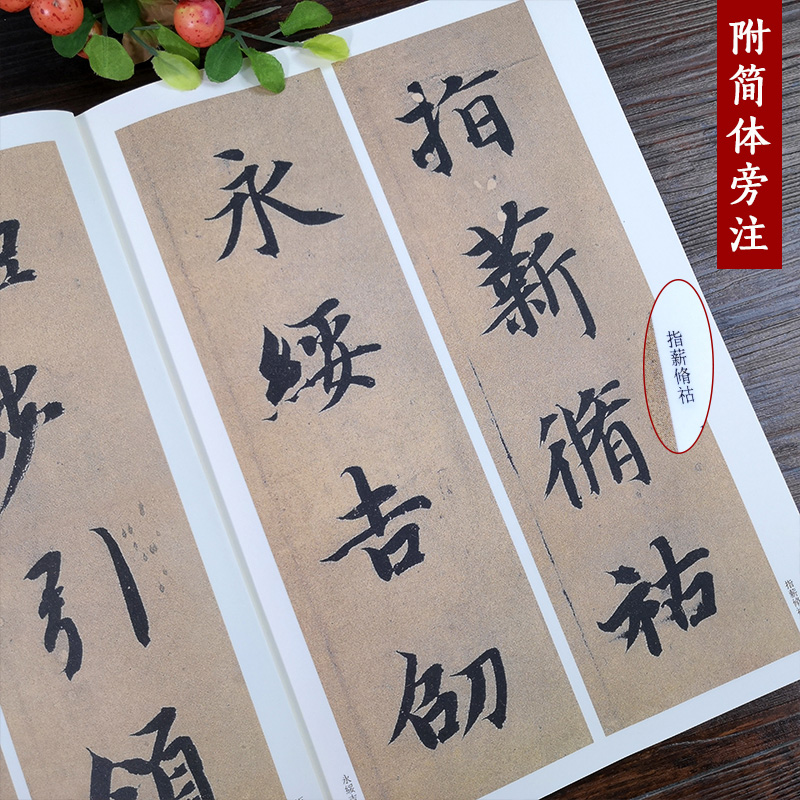 附简体旁注
指薪脩祜
指薪脩祜
永綏吉劭
步引領
指薪脩
永綏吉